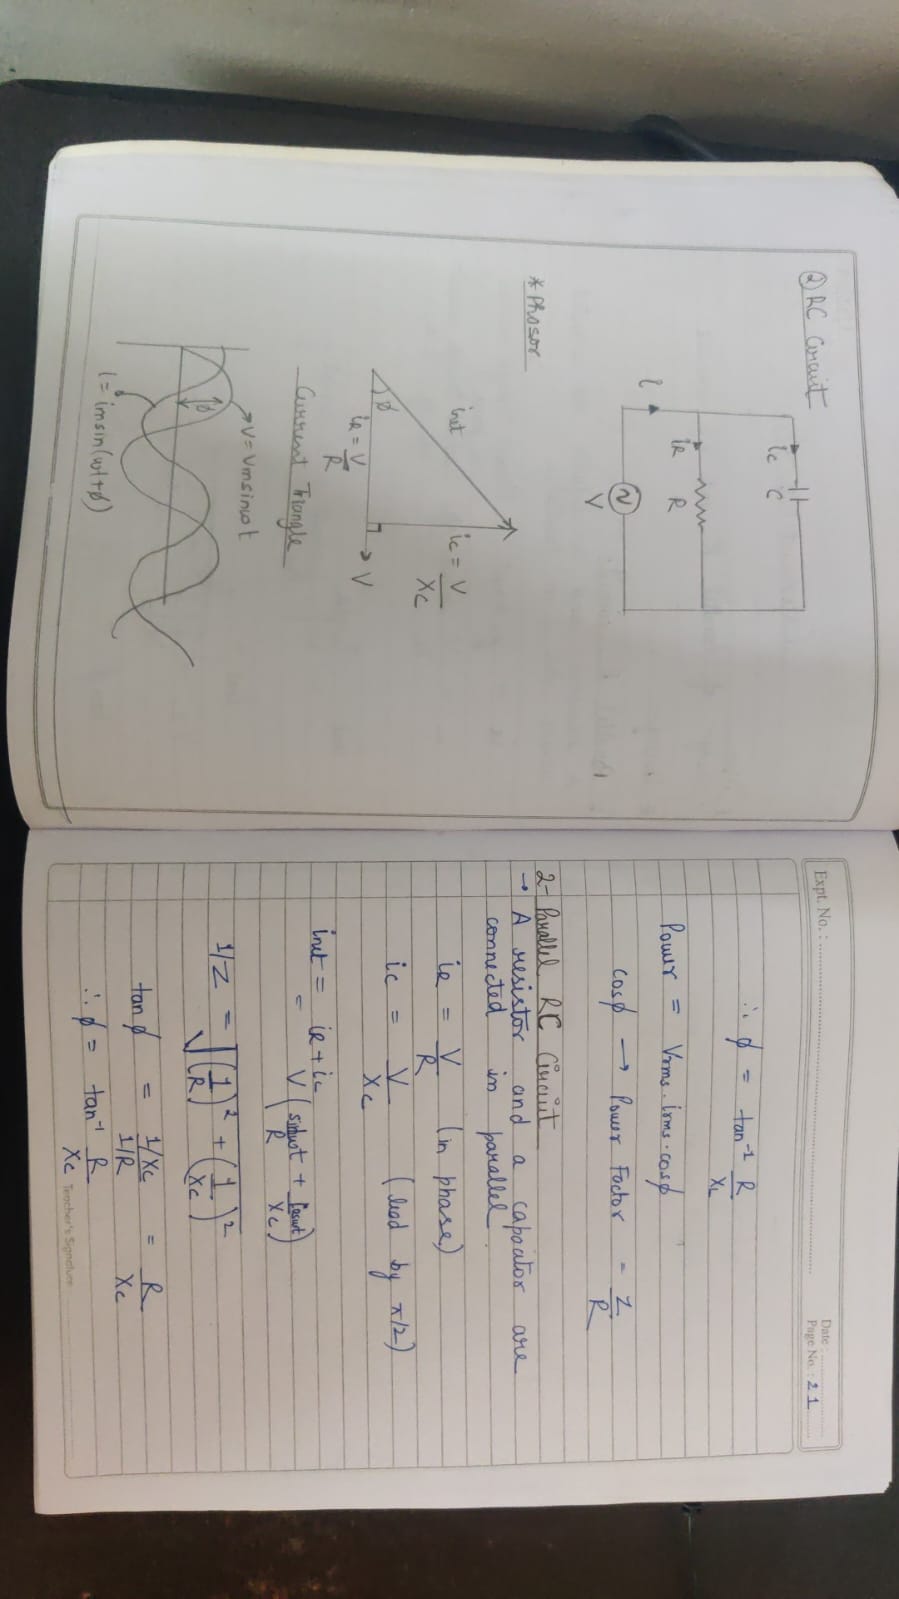 ② RC Circuit
ic
C
iR
R
i
V
* Phasor
inet
ic = V/Xc
ϕ
iR = V/R
V
Current Triangle
V = Vmsinωt
ϕ
i = imsin(ωt+ϕ)
Expt. No. :
Date :
Page No. : 21
∴ ϕ = tan⁻¹ R/XL
Power = Vrms.irms.cosϕ
cosϕ → Power Factor = Z/R
2- Parallel RC Circuit
→ A resistor and a capacitor are
connected in parallel.
iR = V/R (in phase)
ic = V/Xc (lead by π/2)
inet = iR + ic
= V (sinωt/R + cosωt/Xc)
1/Z = √((1/R)² + (1/Xc)²)
tanϕ = 1/Xc / 1/R = R/Xc
∴ ϕ = tan⁻¹ R/Xc
Teacher's Signature